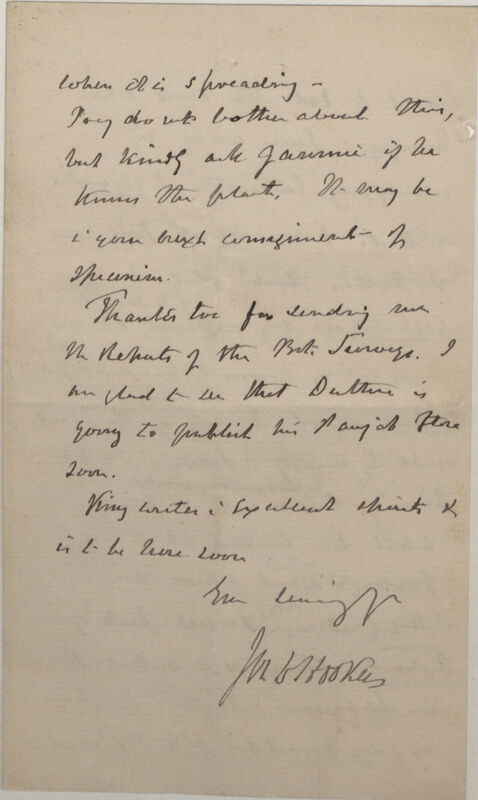 when it is spreading —
Pray do not bother about this,
but kindly ask Jammie if he
knows the plant, It may be
i your next consignment of
specimens.
Thanks too for sending me
the Reports of the Bot. Surveys. I
am glad to see that Duthie is
going to publish his Panjab Flora
soon.
King writes i excellent spirits &
is to be here soon
Ever sincerely yrs
Jos D Hooker